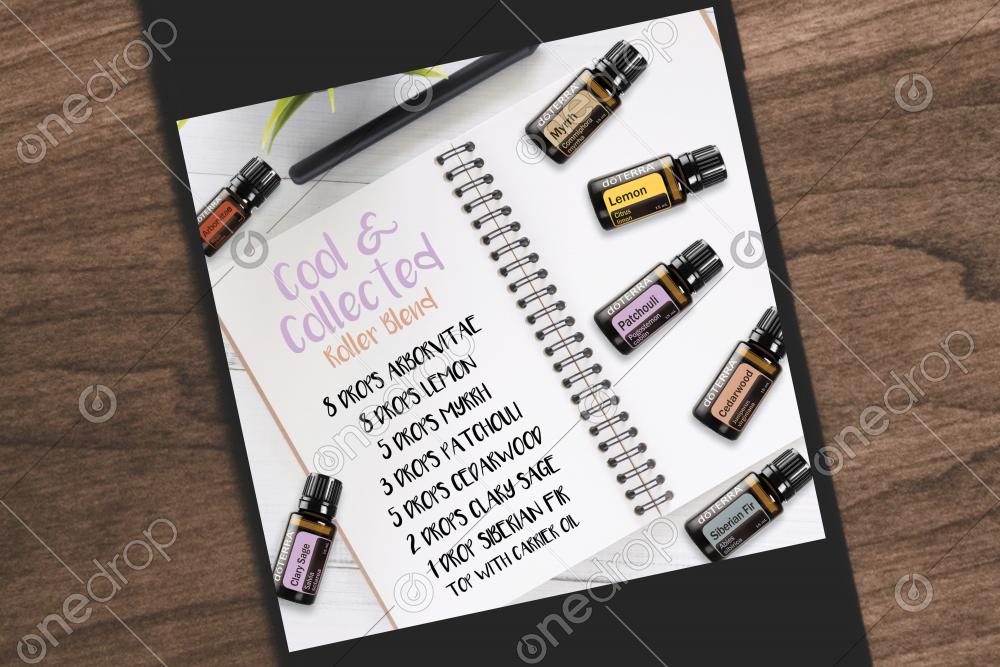 Cool &
Collected
Roller Blend
8 DROPS ARBORVITAE
8 DROPS LEMON
5 DROPS MYRRH
3 DROPS PATCHOULI
5 DROPS CEDARWOOD
2 DROPS CLARY SAGE
1 DROP SIBERIAN FIR
TOP WITH CARRIER OIL
dōTERRA
Myrrh
Commiphora
myrrha
dōTERRA
Lemon
Citrus
limon
dōTERRA
Patchouli
Pogostemon
cablin
dōTERRA
Cedarwood
Juniperus
virginiana
dōTERRA
Siberian Fir
Abies
sibirica
dōTERRA
Arborvitae
dōTERRA
Clary Sage
Salvia
sclarea
onedrop